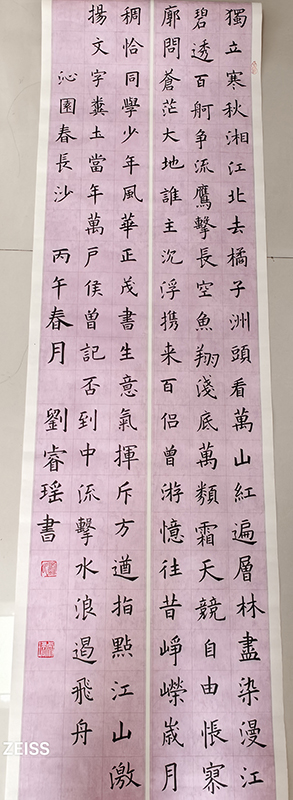 獨立寒秋湘江北去橘子洲頭看萬山紅遍層林盡染漫江
碧透百舸争流鷹擊長空魚翔淺底萬類霜天競自由悵寥
廓問蒼茫大地誰主沉浮携来百侣曾游憶往昔崢嶸歲月
稠恰同學少年風華正茂書生意氣揮斥方遒指點江山激
揚文字糞土當年萬戶侯曾記否到中流擊水浪遏飛舟
沁園春長沙 丙午春月 劉睿瑶書
ZEISS